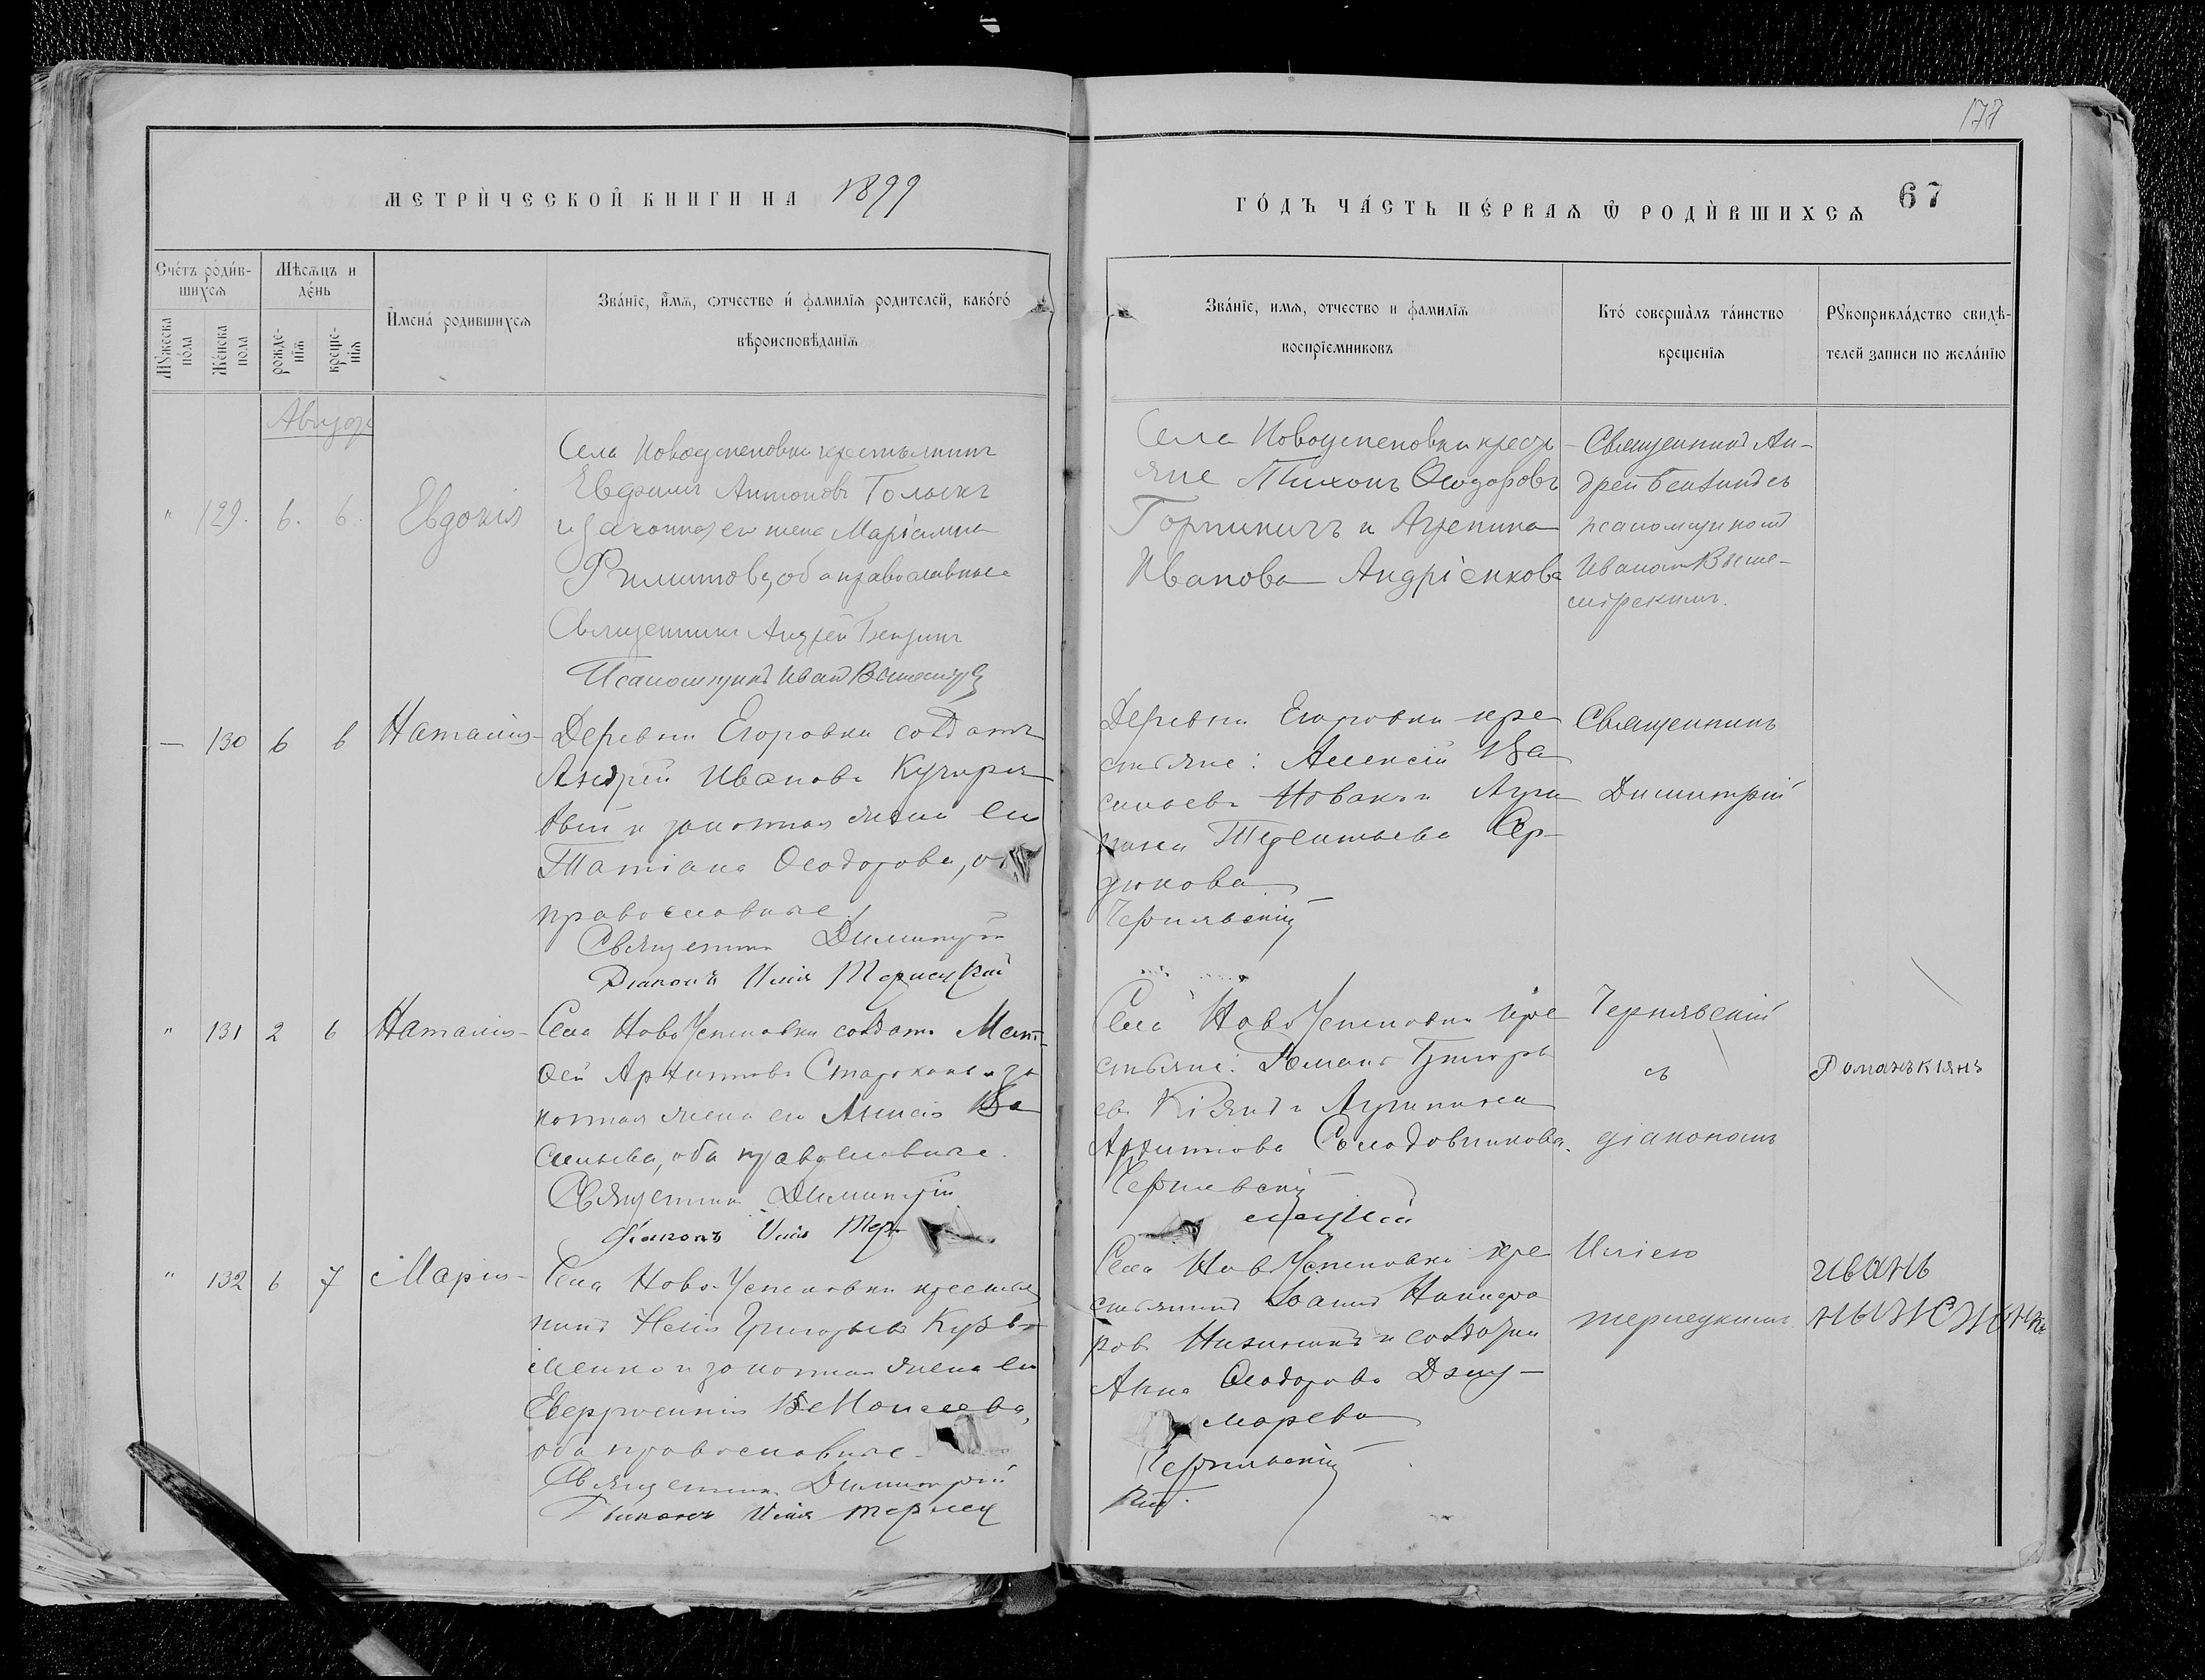 177
МЕТРИ́ЧЕСКОЙ КНИГИ НА 1899
ГО́ДЪ ЧА́СТЬ ПЕ́РВАѦ Ѿ РОДИ́ВШИХСѦ 67
Сче́тъ роди́в-
шихсѧ
Мѣсѧцъ и
де́нь
Мꙋжеска
по́ла
Же́нска
пола
рожде-
нїѧ
креще-
нїѧ
И҆мена́ родившихсѧ
Зва́нїе, и҆́мѧ, ѻтчество и҆ фамилїѧ родителей, како́гѡ
вѣроисповѣ́данїѧ
Зва́нїе, имѧ, отчество и фамилїѧ
воспрїемниковъ
Кто́ совершалъ та́инство
крещенїѧ
Рꙋкоприкла́дство свидѣ-
телей записи по жела́нїю
Август
" 129. 6. 6. Евдокія
Села Новоуспеновки крестьянинъ
Антоновъ
и законная его жена
оба православные
Священникъ Андрей
Псаломщикъ Иван
Села Новоуспеновки кресть
яне Тихонъ Ѳеодоровъ
и Агрепина
Иванова Андріенкова
Священникъ Ан-
дрей съ
псаломщикомъ
Иваномъ
— 130 6 6 Наталія
Деревни Егоровки солдатъ
Андрей Ивановъ
и законная жена его
Татіана Ѳеодорова,
православные.
Священникъ Димитрій
Діаконъ Илія Терлецкій
Деревни Егоровки кре
стьяне: Алексій Ва
сильевъ Новакъ и Агри
пина Терентьева Сер-
дюкова
Чернявскій
Священникъ
Димитрій
" 131 2 6 Наталія
Села НовоУспеновки солдатъ Мат-
ѳей Архиповъ и за
конная жена его Ва
сильева, оба православные.
Священникъ Димитрій
Діаконъ Илія Тер
Села НовоУспеновки кре
стьяне: Романъ Григорь
евъ Кіянъ и Агрипина
Архипова Солодовникова.
Чернявскій
лецкій
Чернявскій
съ
діакономъ
Романъ кіянъ
" 132 6 7 Марія
Села НовоУспеновки крестья
нинъ Григорьевъ Кузь
менко и законная жена его
Моисеева,
оба православные.
Священникъ Димитрій
Діаконъ Илія терлец
Села НовоУспеновки кре
стьянинъ Іоаннъ Никифо
ровъ и солдатка
Анна Ѳеодорова Джу-
марева
Чернявскій
кій.
Иліею
терлецкимъ.
иванъ